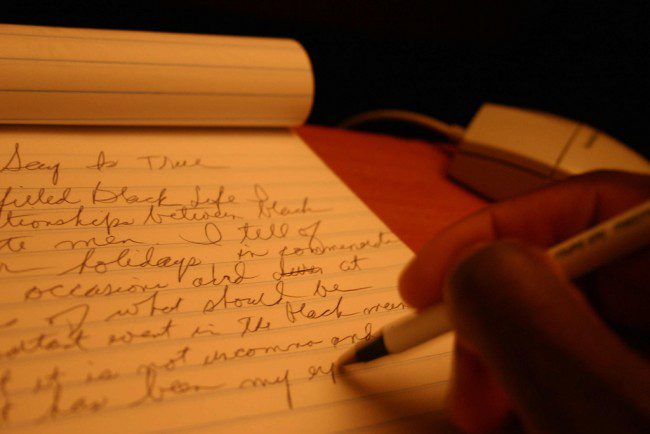 Say Is True
filled Black Life
tionships between black
te men. I tell of
holidays in commemorati
occasions and at
s of what should be
ortant event in the black men
t it is not uncommon and
t has been my exp